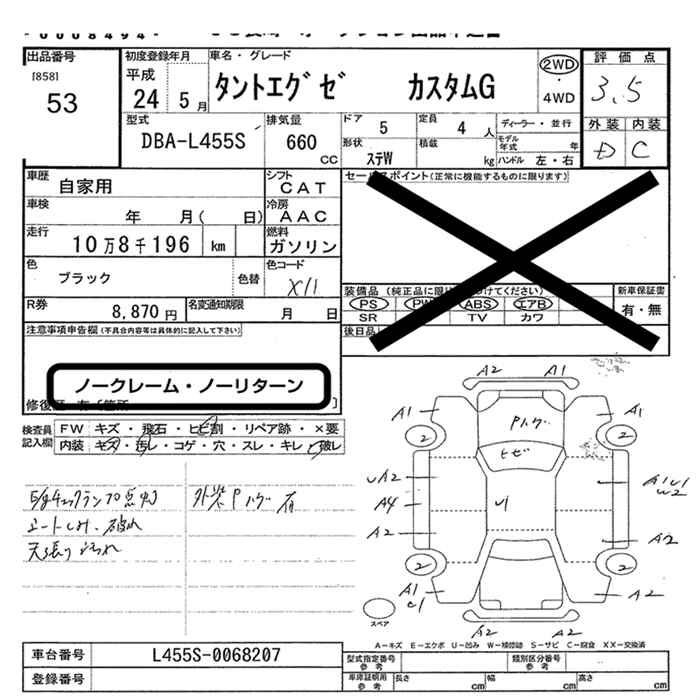 出品番号
[858]
53
初度登録年月
平成
24 5月
車名・グレード
タントエグゼ カスタムG
2WD
4WD
評価点
3.5
外装 内装
D C
型式
DBA-L455S
排気量
660 cc
ドア
5
定員
4 人
ディーラー・並行
モデル年式 年
形状
ステW
積載
kg
ハンドル 左・右
車歴
自家用
シフト
CAT
車検
年 月( 日)
冷房
AAC
走行
10万8千196 km
燃料
ガソリン
色
ブラック
色替
色コード
X11
R券
8,870円
名変通知期限
月 日
セールスポイント(正常に機能するものに限ります)
装備品
PS PW ABS エアB
SR TV カワ
新車保証書
有・無
後日品
注意事項申告欄(不具合内容等は具体的に記入して下さい)
ノークレーム・ノーリターン
検査員記入欄
FW キズ・飛石・ヒビ割・リペア跡・×要
内装 キズ・汚レ・コゲ・穴・スレ・キレ・破レ
E/gチェックランプ点灯
外装Pハゲ有
シートしみ、破れ
天張りよごれ
A2 A1
A1 A1
Pハゲ
2 2
ヒビ
A2
A4
A2
A2
2 2
A1
A2
A2 A2
スペア
A-キズ E-エクボ U-凹み W-補修跡 S-サビ C-腐食 XX-交換済
車台番号
L455S-0068207
登録番号
型式指定番号
参考
類別区分番号
参考
車庫証明用
参考
長さ cm
幅 cm
高さ cm